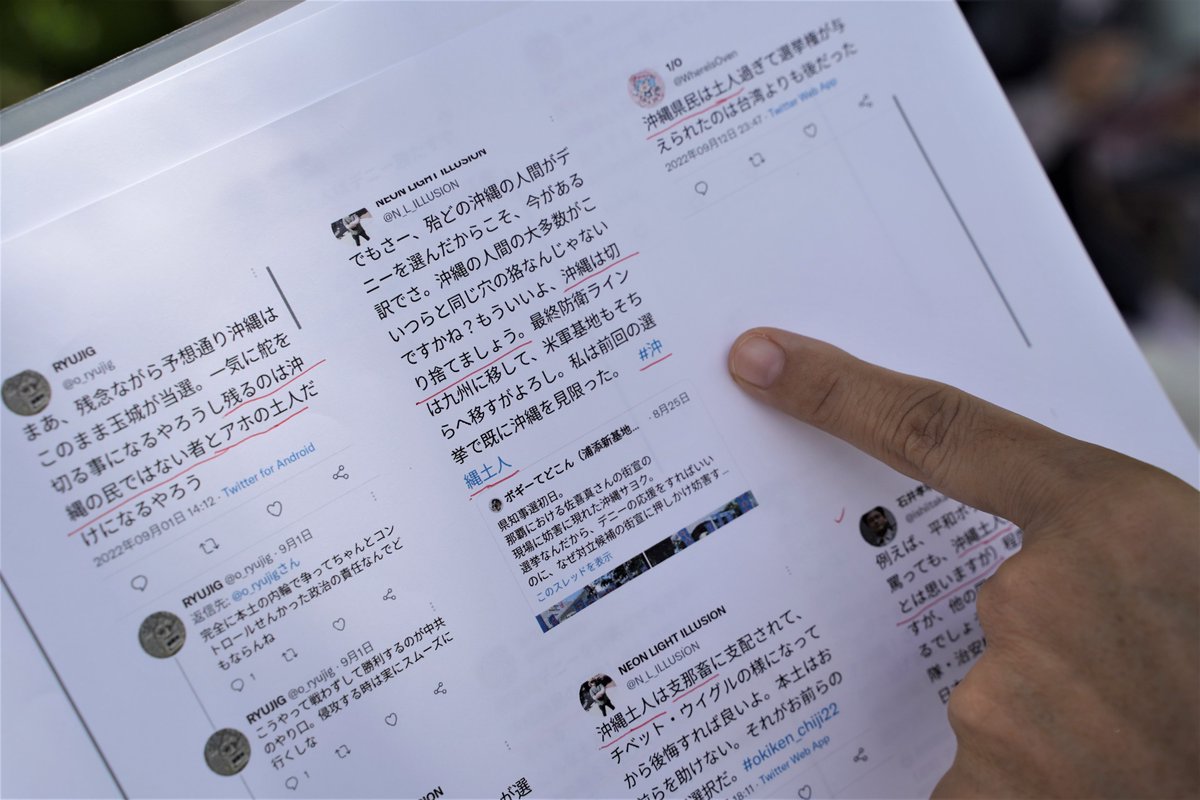 RYUJIG
@o_ryujig
まあ、残念ながら予想通り沖縄は
このまま玉城が当選。一気に舵を
切る事になるやろうし残るのは沖
縄の民ではない者とアホの土人だ
けになるやろう
2022年09月01日 14:12・Twitter for Android
RYUJIG @o_ryujig・9月1日
返信先: @o_ryujigさん
完全に本土の内輪で争ってちゃんとコン
トロールせんかった政治の責任なんでど
もならんね
1
RYUJIG @o_ryujig・9月1日
こうやって戦わずして勝利するのが中共
のやり口。侵攻する時は実にスムーズに
行くしな
1
NEON LIGHT ILLUSION
@N_L_ILLUSION
でもさー、殆どの沖縄の人間がデ
ニーを選んだからこそ、今がある
訳でさ。沖縄の人間の大多数がこ
いつらと同じ穴の狢なんじゃない
ですかね？もういいよ、沖縄は切
り捨てましょう。最終防衛ライン
は九州に移して、米軍基地もそち
らへ移すがよろし。私は前回の選
挙で既に沖縄を見限った。 #沖
縄土人
ボギーてどこん（浦添新基地... ・8月25日
県知事選初日。
那覇における佐喜真さんの街宣の
現場に妨害に現れた沖縄サヨク。
選挙なんだから、デニーの応援をすればいい
のに、なぜ対立候補の街宣に押しかけ妨害す...
このスレッドを表示
NEON LIGHT ILLUSION
@N_L_ILLUSION
沖縄土人は支那畜に支配されて、
チベット・ウイグルの様になって
から後悔すれば良いよ。本土はお
前らを助けない。それがお前らの
選択だ。#okiken_chiji22
18:11・Twitter Web App
1/0
@WhereIsOven
沖縄県民は土人過ぎて選挙権が与
えられたのは台湾よりも後だった
2022年09月12日 23:47・Twitter Web App
石井孝
例えば、平和ボ
罵っても、沖縄土人
とは思いますが）程
すが、他の
るでしょ
隊・治安
日
が選